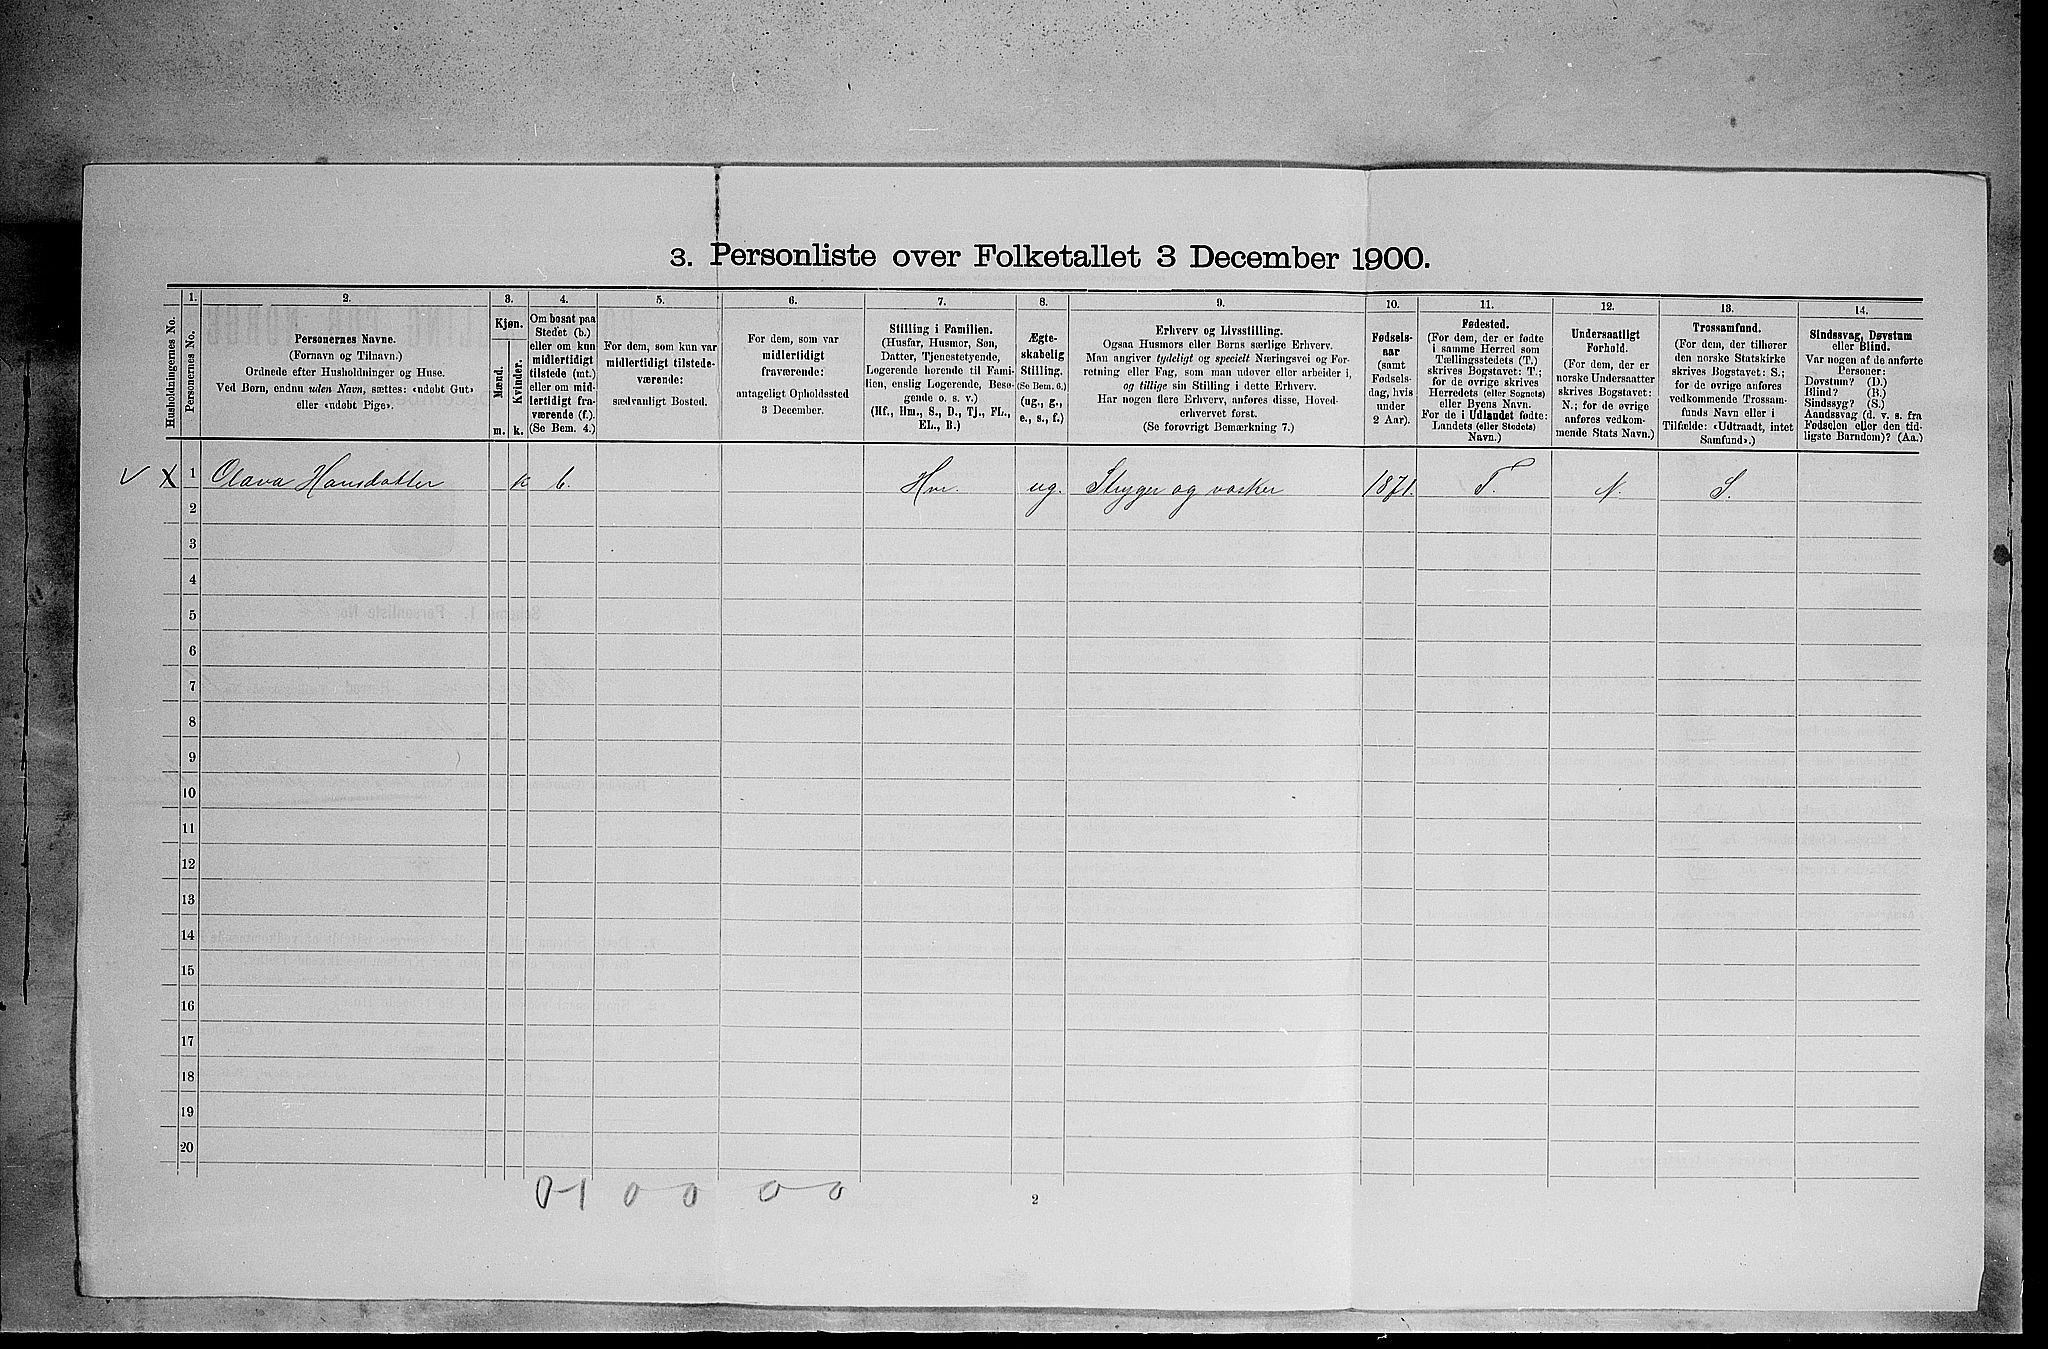 3. Personliste over Folketallet 3 December 1900.
Husholdningernes No.
1.
Personernes No.
2.
Personernes Navne.
(Fornavn og Tilnavn.)
Ordnede efter Husholdninger og Huse.
Ved Børn, endnu uden Navn, sættes: «udøbt Gut»
eller «udøbt Pige».
3.
Kjøn.
Mænd.
Kvinder.
m. k.
4.
Om bosat paa
Stedet (b.)
eller om kun
midlertidigt
tilstede (mt.)
eller om mid-
lertidigt fra-
værende (f.).
(Se Bem. 4.)
5.
For dem, som kun var
midlertidigt tilstede-
værende:
sædvanligt Bosted.
6.
For dem, som var
midlertidigt
fraværende:
antageligt Opholdssted
3 December.
7.
Stilling i Familien.
(Husfar, Husmor, Søn,
Datter, Tjenestetyende,
Logerende hørende til Fami-
lien, enslig Logerende, Besø-
gende o. s. v.)
(Hf., Hm., S., D., Tj., FL.,
EL., B.)
8.
Ægte-
skabelig
Stilling.
(Se Bem. 6.)
(ug., g.,
e., s., f.)
9.
Erhverv og Livsstilling.
Ogsaa Husmors eller Børns særlige Erhverv.
Man angiver tydeligt og specielt Næringsvei og For-
retning eller Fag, som man udøver eller arbeider i,
og tillige sin Stilling i dette Erhverv.
Har nogen flere Erhverv, anføres disse, Hoved-
erhvervet først.
(Se forøvrigt Bemærkning 7.)
10.
Fødsels-
aar
(samt
Fødsels-
dag, hvis
under
2 Aar).
11.
Fødested.
(For dem, der er fødte
i samme Herred som
Tællingsstedets (T.)
skrives Bogstavet: T.;
for de øvrige skrives
Herredets (eller Sognets)
eller Byens Navn.
For de i Udlandet fødte:
Landets (eller Stedets)
Navn.)
12.
Undersaatligt
Forhold.
(For dem, der er
norske Undersaatter
skrives Bogstavet:
N.; for de øvrige
anføres vedkom-
mende Stats Navn.)
13.
Trossamfund.
(For dem, der tilhører
den norske Statskirke
skrives Bogstavet: S.;
for de øvrige anføres
vedkommende Trossam-
funds Navn eller i
Tilfælde: «Udtraadt, intet
Samfund».)
14.
Sindssvag, Døvstum
eller Blind.
Var nogen af de anførte
Personer:
Døvstum? (D.)
Blind? (B.)
Sindssyg? (S.)
Aandssvag (d. v. s. fra
Fødselen eller den tid-
ligste Barndom)? (Aa.)
X 1 Olava Hansdatter k b. Hm. ug. Stryger og vasker 1871. T. N. S.
2
3
4
5
6
7
8
9
10
11
12
13
14
15
16
17
18
19
20
0-1 0 0 0 0
2